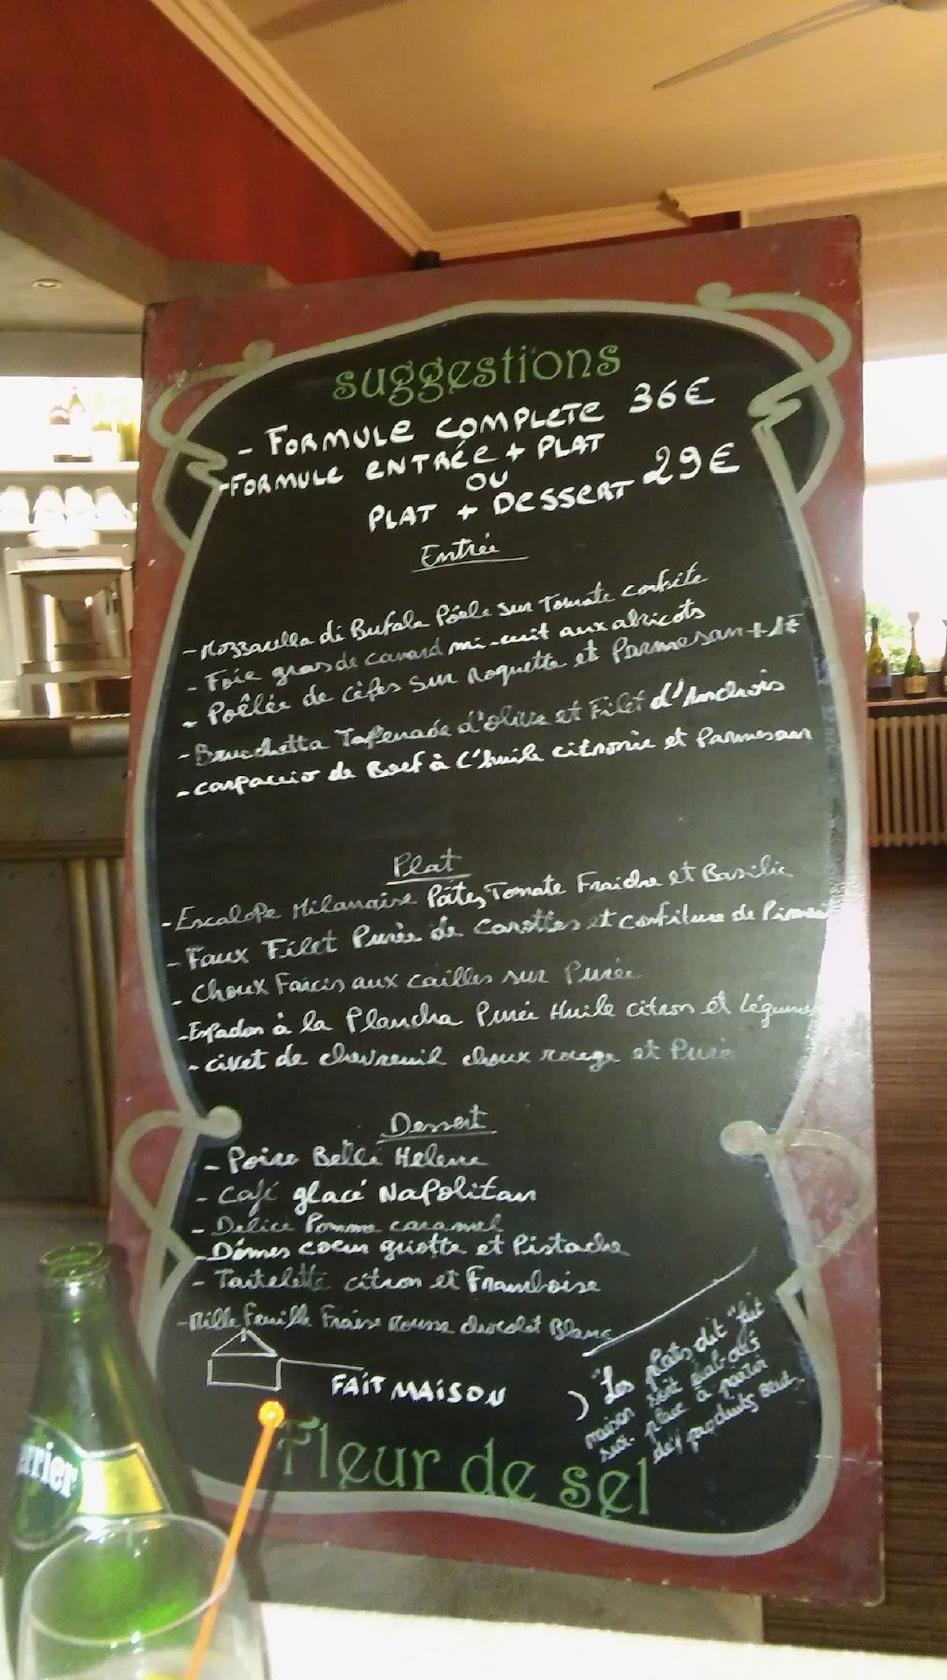 suggestions
- FORMULE COMPLETE 36€
-FORMULE ENTRÉE + PLAT
OU
PLAT + DESSERT 29€
Entrée
- Mozzarella di Bufala Pôele sur Tomate confite
- Foie gras de canard mi-cuit aux abricots
- Poêlée de cèpes sur Roquette et Parmesan + 1€
- Bruschetta Tapenade d'olive et Filet d'Anchois
- carpaccio de Boeuf à l'huile citronnée et Parmesan
Plat
- Escalope Milanaise Pâtes, Tomate Fraiche et Basilic
- Faux Filet Purée de Carottes et confiture de Piment
- Choux Farcis aux cailles sur Purée
- Espadon à la Plancha Purée Huile citron et Légumes
- civet de chevreuil choux rouge et Purée
Dessert
- Poire Belle Helene
- Café glacé Napolitain
- Delice Pomme caramel
- Dômes coeur griotte et Pistache
- Tartelette citron et Framboise
- Mille Feuille Fraise Mousse chocolat Blanc
FAIT MAISON
"Les plats dit "fait
maison sont élaborés
sur place à partir
de produits
Fleur de sel
rrier